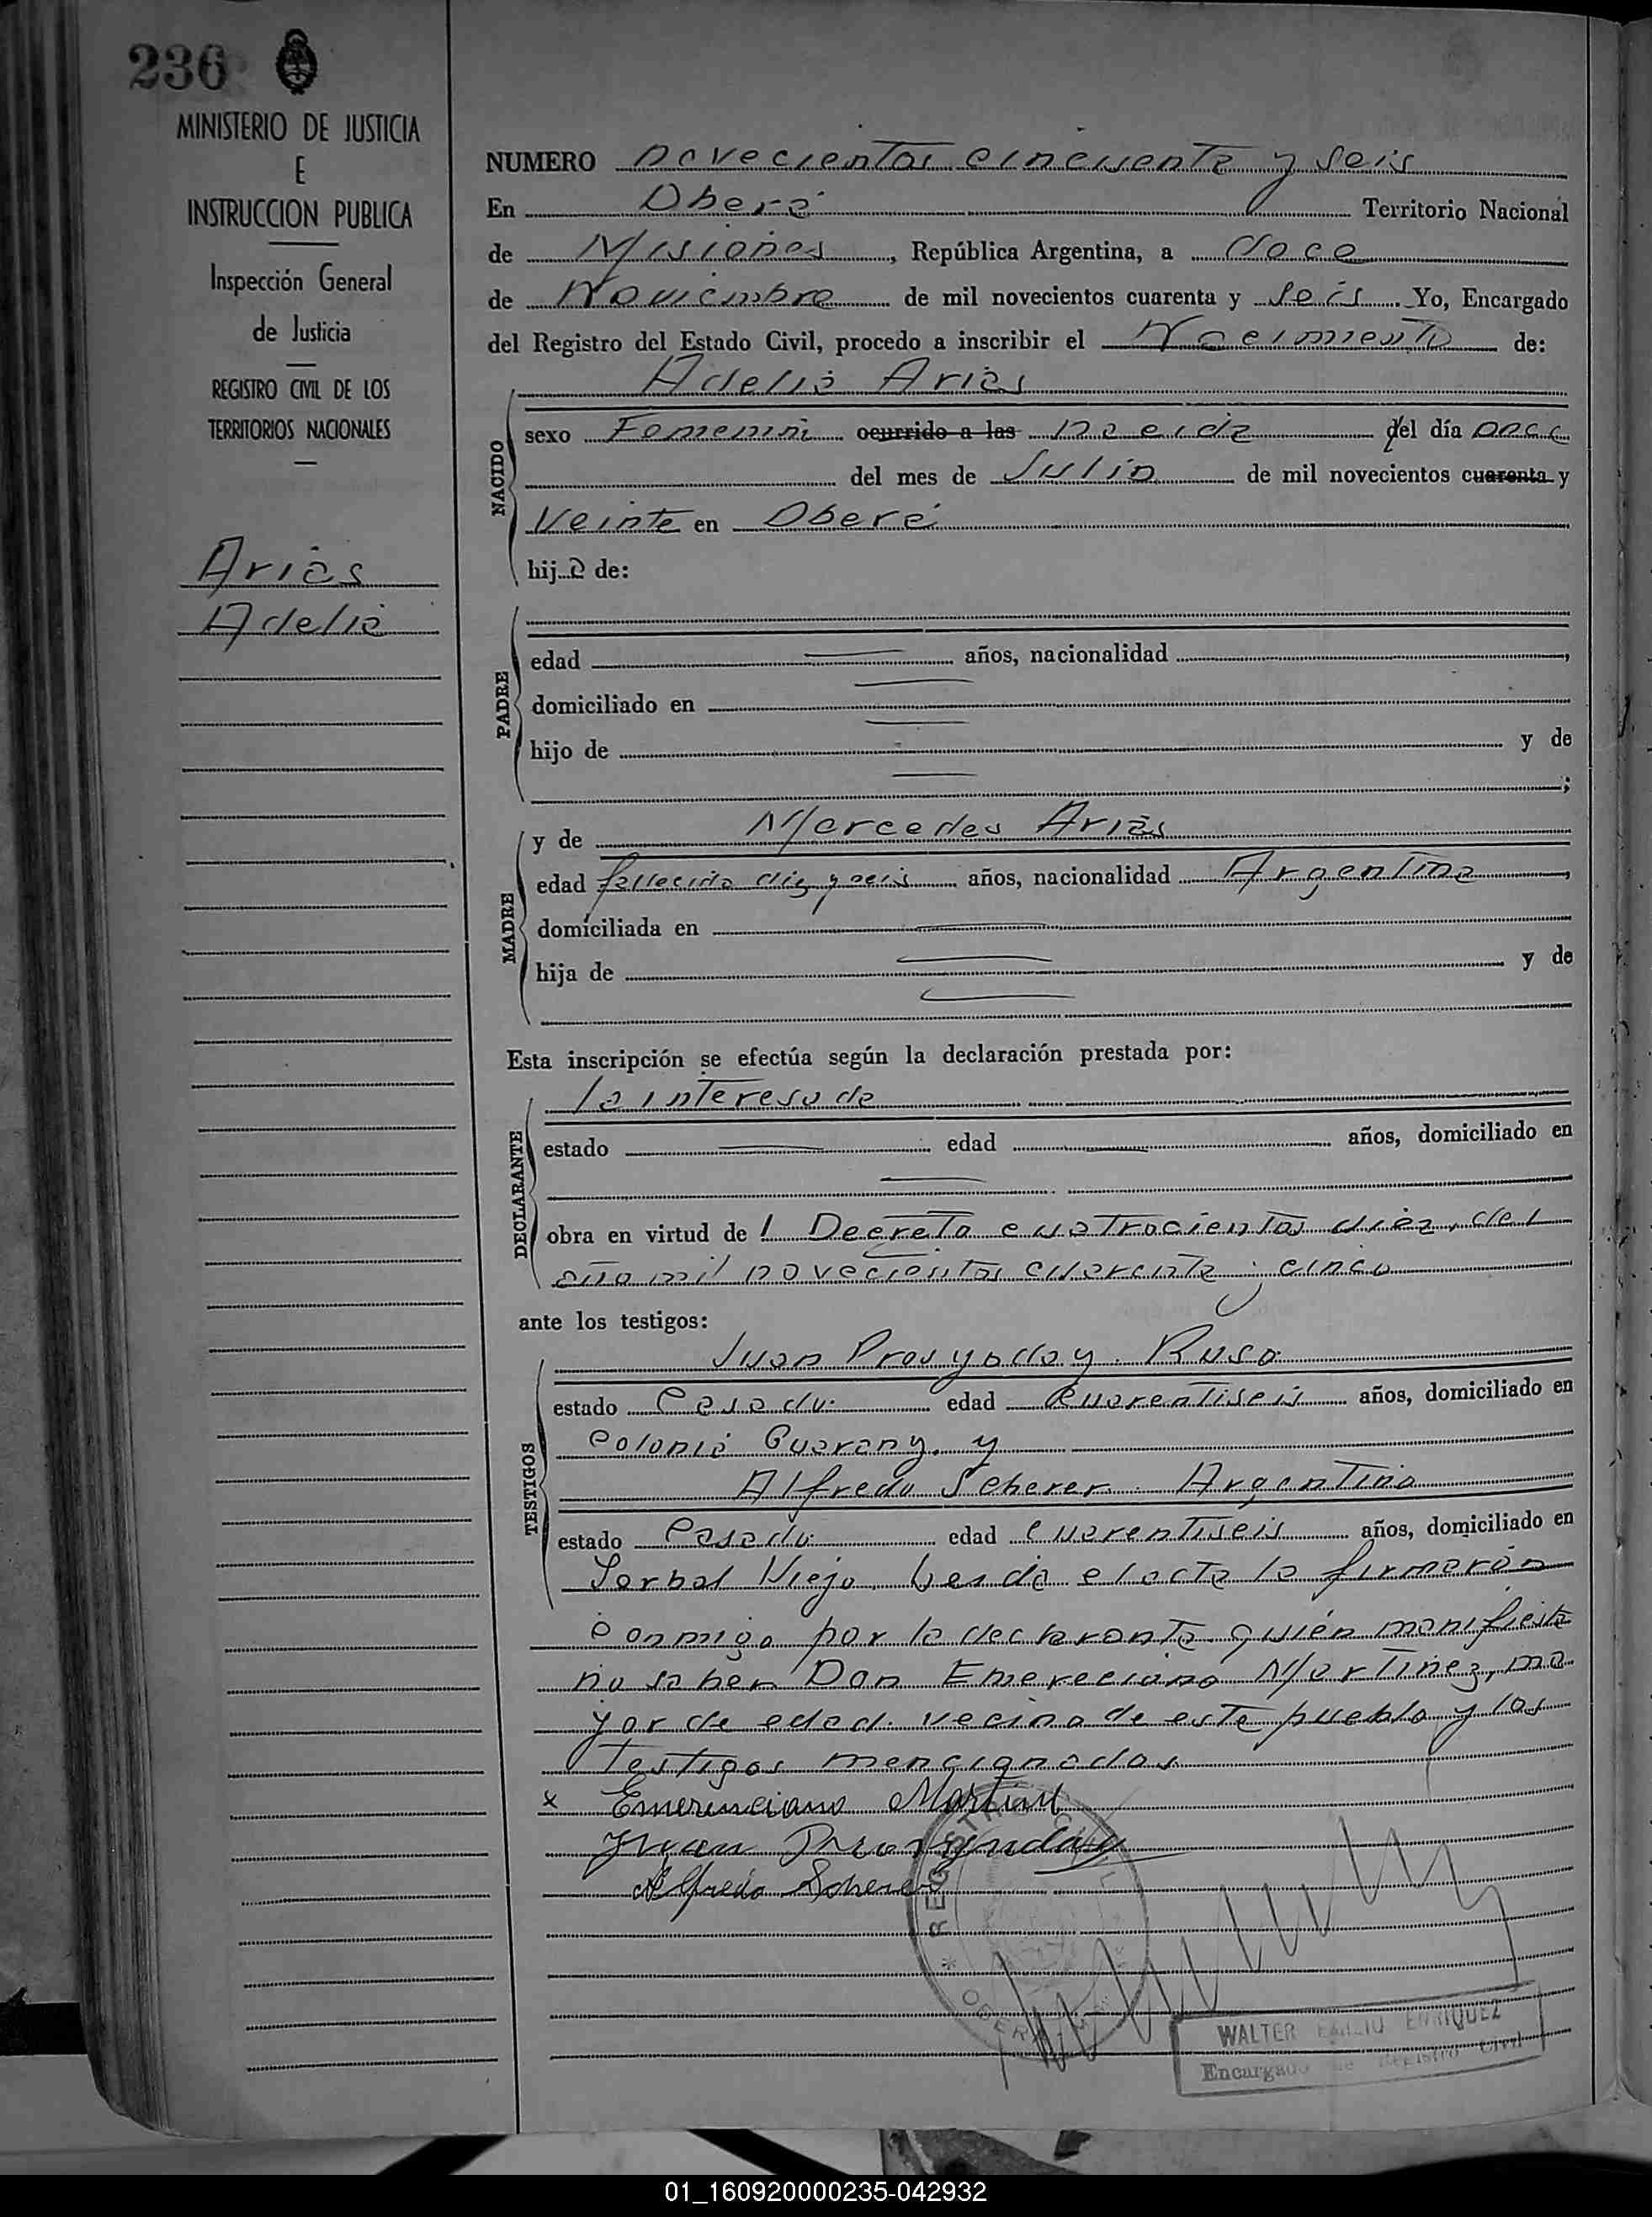 236
MINISTERIO DE JUSTICIA
E
INSTRUCCION PUBLICA
Inspección General
de Justicia
REGISTRO CIVIL DE LOS
TERRITORIOS NACIONALES
Arias
Adelia
NUMERO novecientos cincuenta y seis
En Oberá Territorio Nacional
de Misiones, República Argentina, a doce
de Noviembre de mil novecientos cuarenta y seis. Yo, Encargado
del Registro del Estado Civil, procedo a inscribir el Nacimiento de:
Adelia Arias
NACIDO
sexo Femenin ocurrido a las nacida del día once
del mes de Julio de mil novecientos cuarenta y
Veinte en Oberá
hija de:
PADRE
edad años, nacionalidad ,
domiciliado en
hijo de y de
;
MADRE
y de Mercedes Arias
edad fallecida diez y seis años, nacionalidad Argentina,
domiciliada en
hija de y de
Esta inscripción se efectúa según la declaración prestada por:
DECLARANTE
la interesada
estado edad años, domiciliado en
obra en virtud de l Decreto cuatrocientos diez, del
año mil novecientos cuarenta y cinco
ante los testigos:
TESTIGOS
Juan Prosyoday. Ruso
estado Casado. edad cuarentiseis años, domiciliado en
Colonia Guarany. y
Alfredo Scherer. Argentino
estado Casado edad cuarentiseis años, domiciliado en
Yerbal Viejo. Leida el acta la firmarán
conmigo por la declarante quién manifiesta
no saber Don Emereciano Martinez, ma
yor de edad. vecino de este pueblo y los
testigos mencionados
x Emerenciano Martinez
Alfredo Scherer
REGISTRO CIVIL
OBERA
WALTER EMILIO ENRIQUEZ
Encargado de Registro Civil
01_160920000235-042932